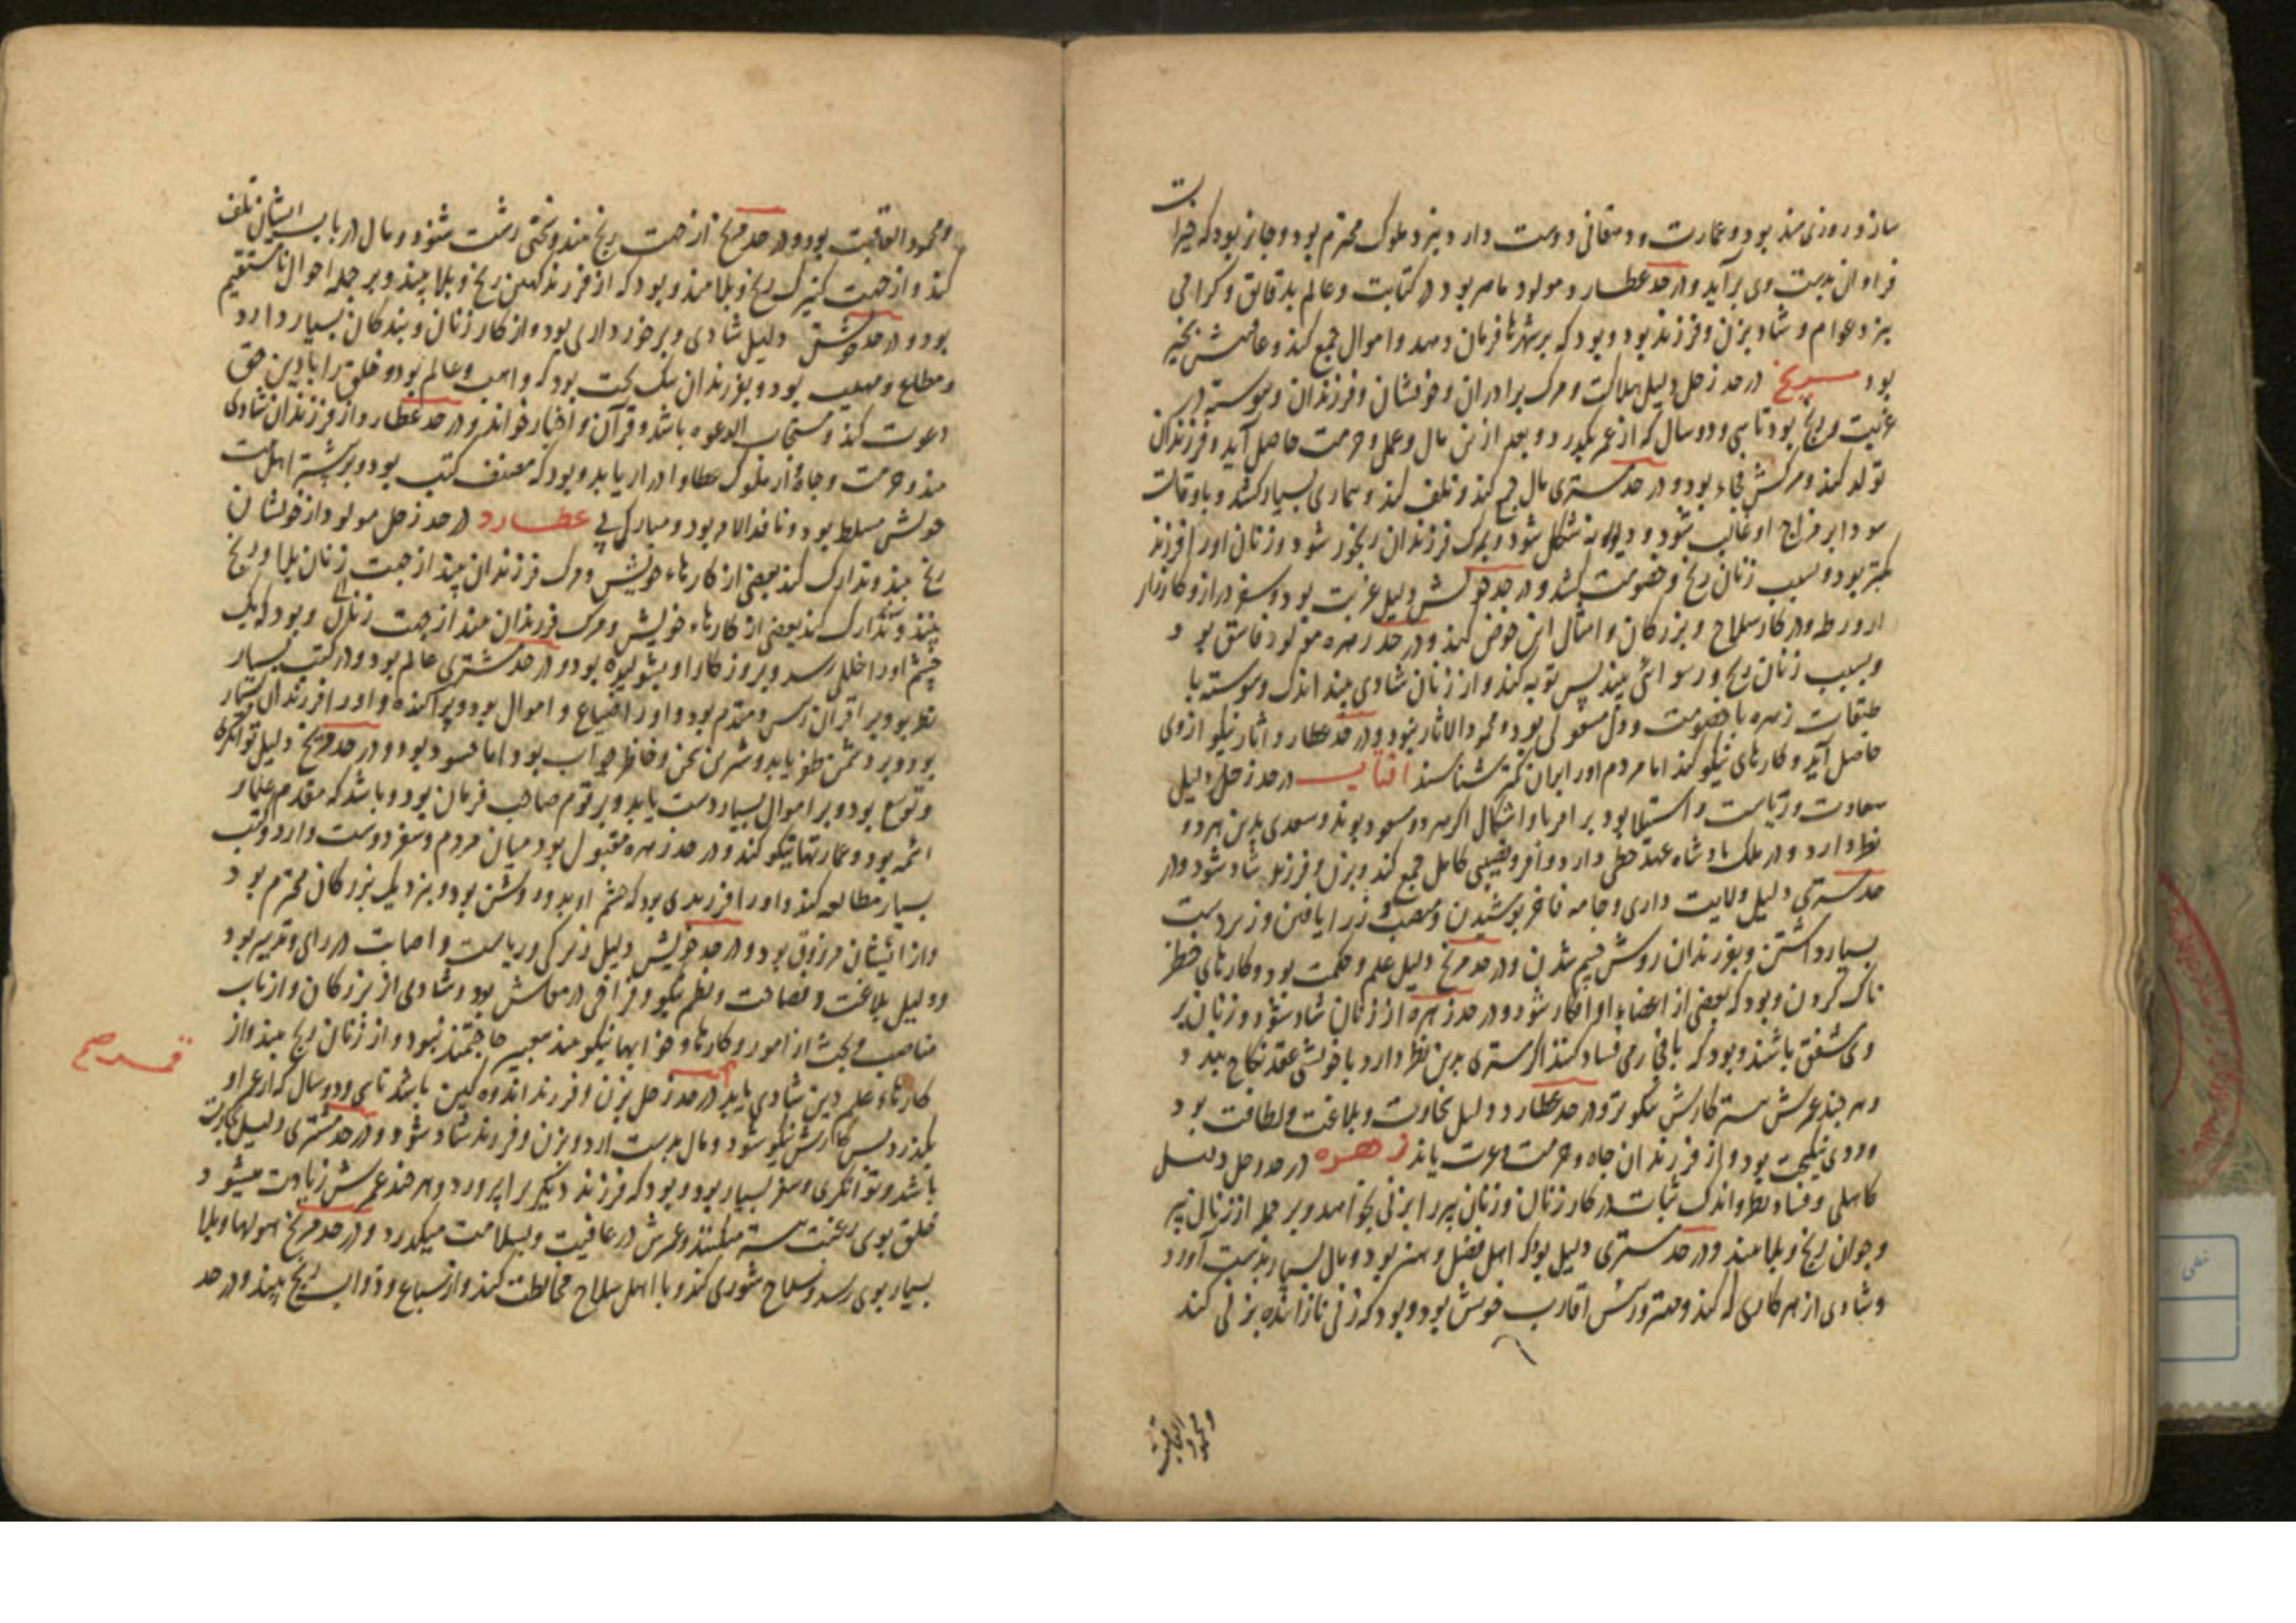 ساز و روزی مند بود و عمارت و دهقانی دوست دارد و بنزد ملوک محترم بود و جایز بود که خیرات
فراوان بدست وی برآید و در حد عطارد مولود ماهر بود در کتابت و عالم بدقایق و گرامی
بنزد عوام و شاد بزن و فرزند بود و بود که بر شهرها فرمان دهد و اموال جمع کند و عاقبتش بخیر
بود مریخ در حد زحل دلیل هلاکت و مرک برادران و خویشان و فرزندان و پیوسته در
غربت و رنج بود تا سی و دو سال که از عمر بگذرد و بعد ازین مال و عمل و حرمت حاصل آید و فرزندان
تولد کند و مرکش فجاء بود و در حد مشتری مال جمع کند و تلف کند و بیماری بسیار کشد و باوقات
سودا بر مزاج او غالب شود و دیوانه شکل شود و بمرک فرزندان رنجور شود و زنان او را فرزند
کمتر بود و بسبب زنان رنج و خصومت کشد و در حد خویش دلیل غربت بود و سفر دراز و کارزار
و در کار سلاح و بزرکان و امثال این خوض کند و در حد زهره مولود فاسق بود
و بسبب زنان رنج و رسوائی بیند پس توبه کند و از زنان شادی بیند اندک و پیوسته با
طبقات زهره با خصومت و دل مشغولی بود و محمود الاثار بود و در حد عطارد اثار نیکو از وی
حاصل آید و کارهای نیکو کند اما مردم او را بدان کمتر شناسند افتاب در حد زحل دلیل
سعادت و ریاست و استیلا بود بر امرا و اشکال اکر هر دو مسعود بوند و سعدی بدین هر دو
نظر دارد و در ملک پادشاه عهد حظی دارد وافر و نصیبی کامل جمع کند و بزن و فرزند شاد شود و در
حد مشتری دلیل ولایت داری و جامه فاخر پوشیدن و زر یافتن و زیردست
بسیار داشتن و بفرزندان روشن چشم شدن و در حد مریخ دلیل علم و حکمت بود و کارهای خطر
ناک کردن و بود که بعضی از اعضاء او افکار شود و در حد زهره از زنان شاد شود و زنان بر
وی مشفق باشند و بود که با محارمی فساد کند اکر مشتری بدین نظر دارد با خویشی عقد نکاح بندد
و هر چند عمرش بیشتر کارش نیکوتر و در حد عطارد دلیل سخاوت و بلاغت و لطافت بود
و نیکبخت بود و از فرزندان جاه و حرمت و عزت یابد زهره در حد زحل دلیل
کاهلی و فساد نظر و اندک ثبات در کار زنان و زنان پیر را بزنی بخواهد و بر جمله از زنان پیر
و جوان رنج و بلا بیند و در حد مشتری دلیل بود که اهل فضل و هنر بود و مال بسیار بدست آورد
و شادی از هر کاری که کند و مهتر و رئیس اقارب خویش بود و بود که زنی نازاینده بزنی کند
و محمود العاقبت
و محمود العاقبت بود و در حد مریخ از جهت رنج بیند و سختی زشت شنود و مال در باب ایشان تلف
کند و از جهت کنیزک رنج و بلا بیند و بود که از فرزند کهین رنج و بلا بیند و بر جمله احوال نامستقیم
بود و در حد خویش دلیل شادی و برخورداری بود و از کار زنان و بندکان بسیار دارد
و مطاع و مهیب بود و بفرزندان نیک بخت بود که واهب و عالم بود و خلق را با دین حق
دعوت کند و مستجاب الدعوه باشد و قرآن و اخبار خواند و در حد عطارد از فرزندان شادی
بیند و حرمت و جاه و از ملوک عطا و ادرار یابد و بود که مصنف کتب بود و بر بیشتر اهل بیت
خویش مسلط بود و نافذ الامر بود و مبارک پی عطارد در حد زحل مولود از خویشان
رنج بیند و تدارک کند بعضی از کارهاء خویش و مرک فرزندان بیند از جهت زنان بلا و رنج
بیند و تدارک کند بعضی از کارهاء خویش و مرک فرزندان بیند از جهت زنان و بود که یک
چشم او را خللی رسد و بروز کار او بشولیده بود و در حد مشتری عالم بود و در کتب بسیار
نظر بود و بر اقران رئیس و مقدم بود و او را ضیاع و اموال بود و پراکنده و او را فرزندان بسیار
بود و بر دشمن ظفر یابد و شیرین سخن و حاضر جواب بود اما حسود بود و در حد مریخ دلیل توانکری
و توسع بود و بر اموال بسیار دست یابد و بر قوم صاحب فرمان بود و باشد که مقدم علما و
ائمه بود و عمارتها نیکو کند و در حد زهره مقبول بود میان مردم و سفر دوست دارد و کتب
بسیار مطالعه کند و او را فرزندی بود که چشم او بدو روشن بود و بنزدیک بزرکان محترم بود
و از ایشان مرزوق بود و در حد خویش دلیل زیرکی و ریاست و اصابت در رای و تدبیر بود
و دلیل بلاغت و فصاحت و نظم نیکو و فراخی در معاش بود و شادی از بزرکان و ارباب
مناصب و بحث از امور و کارها و خوابها نیکو بیند بمعبر حاجتمند نبود و از زنان رنج بیند و از
کارهاء علم دین شادی یابد قمر در حد زحل بزن و فرزند اندوه کین باشد تا سی و دو سال که از عمر او
بگذرد پس کارش نیکو شود و مال بدست آرد و بزن و فرزند شاد شود و در حد مشتری دلیل تجارت
باشد و توانکری و سفر بسیار بود و بود که فرزند دیکری را پرورد و هر چند عمرش زیادت میشود
خلق بوی رغبت بیشتر میکنند و عمرش در عافیت و بسلامت میکذرد و در حد مریخ هولها و بلا
بسیار بوی رسد و سلاح شوری کند و با اهل سلاح مخالطت کند و از سباع و دواب رنج بیند و در حد
قمر صح
خطی